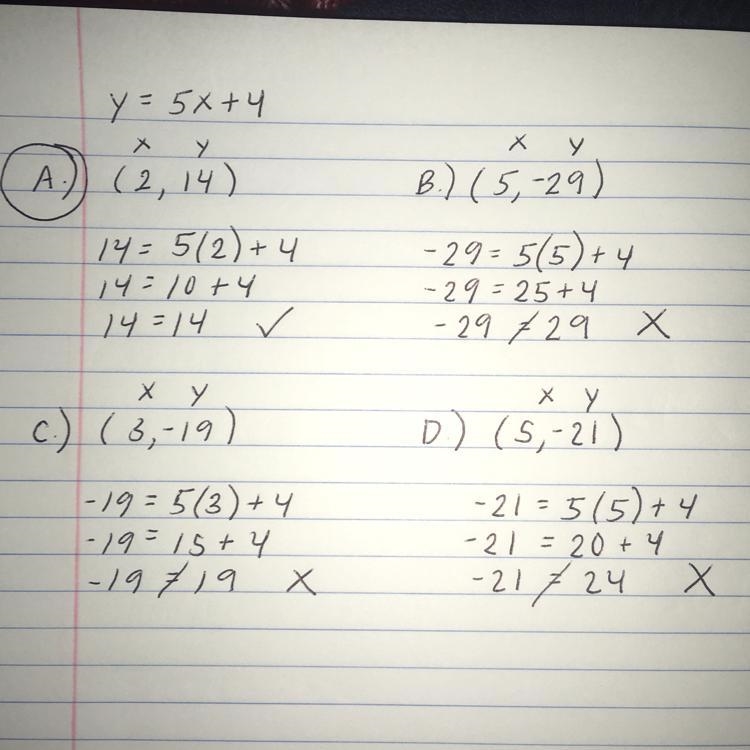 y = 5x + 4
x y
A.) (2, 14)
14 = 5(2) + 4
14 = 10 + 4
14 = 14 ✓
x y
B.) (5, -29)
-29 = 5(5) + 4
-29 = 25 + 4
-29 ≠ 29 X
x y
C.) (3, -19)
-19 = 5(3) + 4
-19 = 15 + 4
-19 ≠ 19 X
x y
D.) (5, -21)
-21 = 5(5) + 4
-21 = 20 + 4
-21 ≠ 24 X